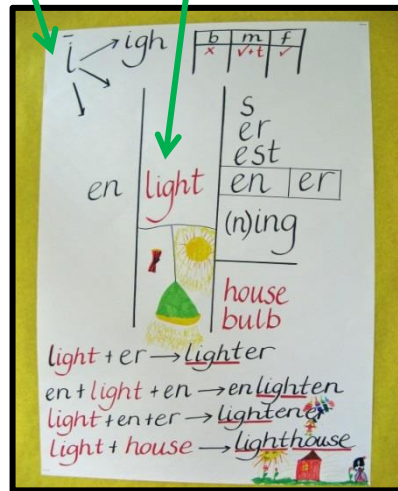 ī → igh
b m f
x ✓+t ✓
s
er
est
en light en er
(n)ing
house
bulb
light + er → lighter
en + light + en → enlighten
light + en + er → lightener
light + house → lighthouse